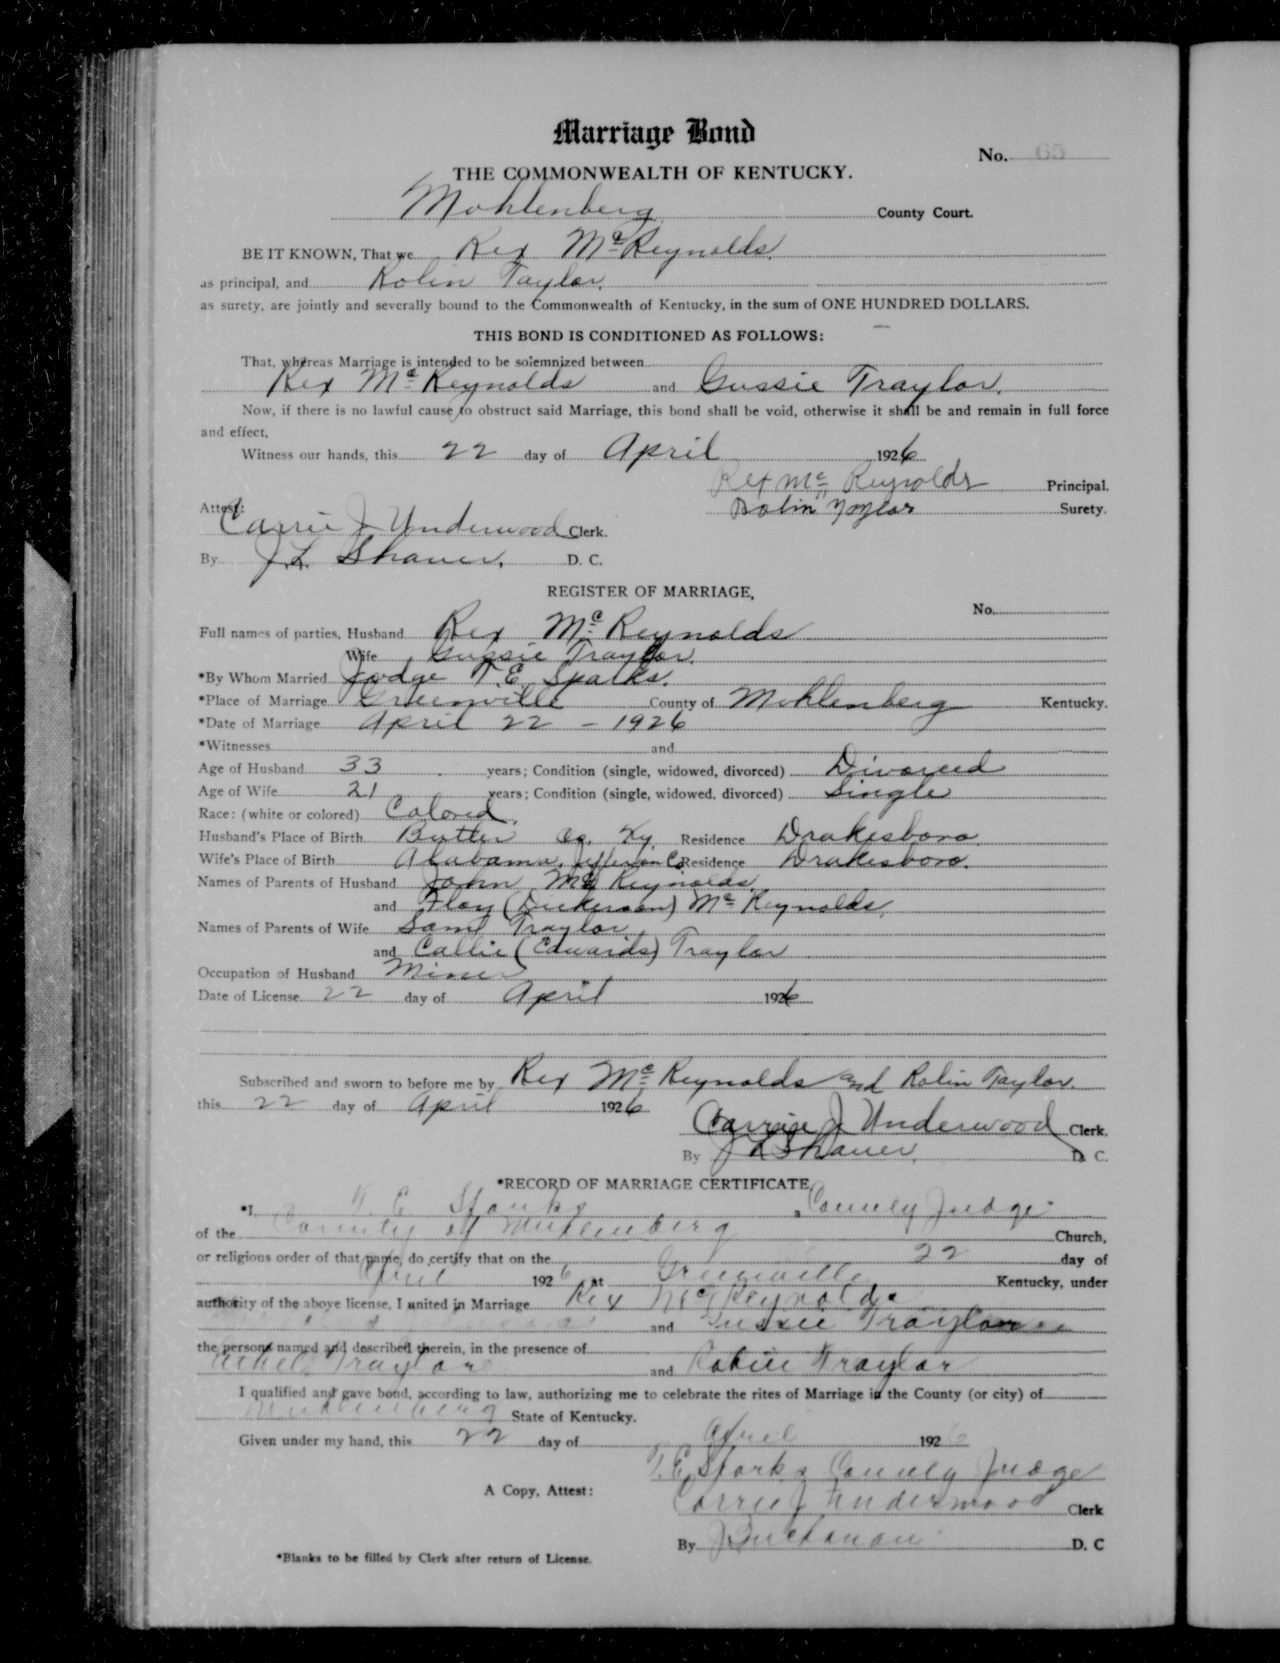 Marriage Bond
No. 65
THE COMMONWEALTH OF KENTUCKY.
Mohlenberg County Court.
BE IT KNOWN, That we Rex Mc Reynolds.
as principal, and Rolin Taylor.
as surety, are jointly and severally bound to the Commonwealth of Kentucky, in the sum of ONE HUNDRED DOLLARS.
THIS BOND IS CONDITIONED AS FOLLOWS:
That, whereas Marriage is intended to be solemnized between
Rex Mc Reynolds and Gussie Traylor.
Now, if there is no lawful cause to obstruct said Marriage, this bond shall be void, otherwise it shall be and remain in full force
and effect,
Witness our hands, this 22 day of April 1926
Rex Mc Reynolds Principal.
Attest: Rolin Taylor Surety.
Carrie J Underwood Clerk.
By J.L. Shaver. D. C.
REGISTER OF MARRIAGE,
No.
Full names of parties, Husband Rex Mc Reynolds
Wife Gussie Traylor.
*By Whom Married Judge T. E. Sparks.
*Place of Marriage Greenville County of Mohlenberg Kentucky.
*Date of Marriage April 22 - 1926
*Witnesses and
Age of Husband 33 years; Condition (single, widowed, divorced) Divorced
Age of Wife 21 years; Condition (single, widowed, divorced) Single
Race: (white or colored) Colored.
Husband's Place of Birth Butler Co. Ky. Residence Drakesboro.
Wife's Place of Birth Alabama, Jefferson Co Residence Drakesboro.
Names of Parents of Husband John Mc Reynolds
and Floy (Dickerson) Mc Reynolds.
Names of Parents of Wife Saml Traylor
and Callie (Edwards) Traylor
Occupation of Husband Miner
Date of License 22 day of April 1926
Subscribed and sworn to before me by Rex Mc Reynolds and Rolin Taylor.
this 22 day of April 1926
Carrie J Underwood Clerk.
By J L Shaver. D. C.
*RECORD OF MARRIAGE CERTIFICATE
*I, T. E. Sparks, County Judge
of the County of Muhlenberg Church,
or religious order of that name, do certify that on the 22 day of
April 1926 At Greenville Kentucky, under
authority of the above license, I united in Marriage Rex Mc Reynolds
and Gussie Traylor
the persons named and described therein, in the presence of
Traylor and Traylor
I qualified and gave bond, according to law, authorizing me to celebrate the rites of Marriage in the County (or city) of
Muhlenberg State of Kentucky.
Given under my hand, this 22 day of April 1926
T. E. Sparks County Judge
A Copy, Attest: Carrie J Underwood Clerk
By J Buchanan D. C
*Blanks to be filled by Clerk after return of License.